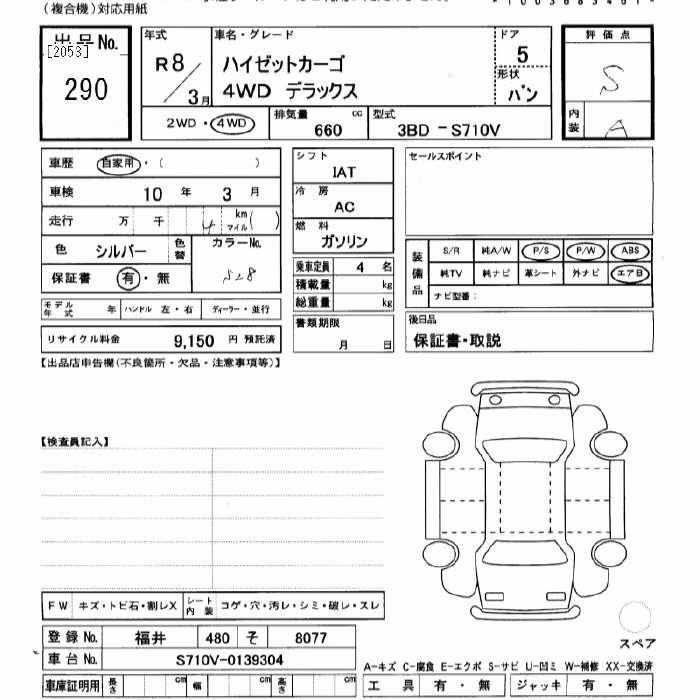 (複合機)対応用紙
出品No.
[2053]
290
年式 車名・グレード ドア
R8/3月 ハイゼットカーゴ 5
4WD デラックス 形状 バン
2WD・4WD 排気量 660 cc 型式 3BD-S710V
評価点
S
内装 A
車歴 自家用・( )
車検 10年 3月
走行 万 千 4 km マイル( )
色 シルバー 色替 カラーNo. S28
保証書 有・無
モデル年式 年 ハンドル 左・右 ディーラー・並行
リサイクル料金 9,150 円 預託済
シフト IAT
冷房 AC
燃料 ガソリン
乗車定員 4 名
積載量 kg
総重量 kg
書類期限
月 日
セールスポイント
装備品 S/R 純A/W P/S P/W ABS
純TV 純ナビ 革シート 外ナビ エアB
ナビ型番:
後日品
保証書・取説
【出品店申告欄(不良箇所・欠品・注意事項等)】
【検査員記入】
FW キズ・トビ石・割レX シート内装 コゲ・穴・汚レ・シミ・破レ・スレ
登録No. 福井 480 そ 8077
車台No. S710V-0139304
車庫証明用 長さ cm 幅 cm 高さ cm
スペア
A-キズ C-腐食 E-エクボ S-サビ U-凹ミ W-補修 XX-交換済
工具 有・無 ジャッキ 有・無